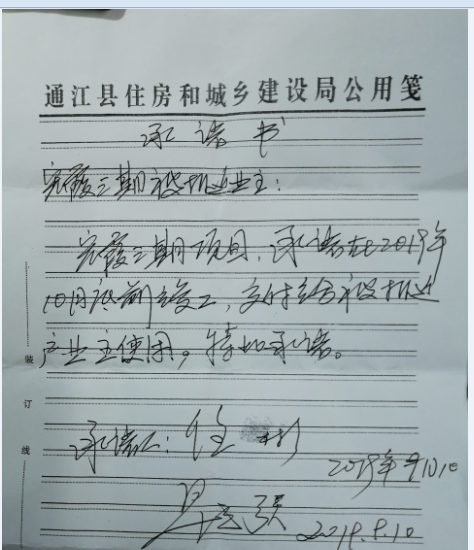 通江县住房和城乡建设局公用笺
承诺书
宏霞三期被拆迁业主:
宏霞三期项目,承诺在2019年
10月底前竣工,交付给被拆迁
产业主使用。特此承诺。
承诺人:
2019年9月10日
2019.9.10
装
订
线